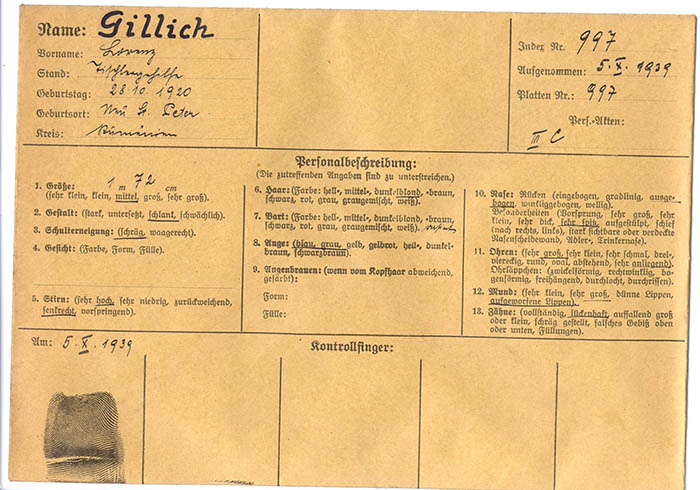 Name: Gillich
Vorname: Lorenz
Stand: Tischlergehilfe
Geburtstag: 28.10.1920
Geburtsort: Neu St. Peter
Kreis: Rumänien
Index Nr. 997
Aufgenommen: 5.X.1939
Platten Nr.: 997
Pers.-Akten:
III C
Personalbeschreibung:
(Die zutreffenden Angaben sind zu unterstreichen.)
1. Größe: 1 m 72 cm
(sehr klein, klein, mittel, groß, sehr groß).
2. Gestalt: (stark, untersetzt, schlank, schwächlich).
3. Schulterneigung: (schräg, waagerecht).
4. Gesicht: (Farbe, Form, Fülle).
5. Stirn: (sehr hoch, sehr niedrig, zurückweichend,
senkrecht, vorspringend).
6. Haar: (Farbe: hell-, mittel-, dunkelblond, -braun,
schwarz, rot, grau, graugemischt, weiß).
7. Bart: (Farbe: hell-, mittel-, dunkelblond, -braun,
schwarz, rot, grau, graugemischt, weiß).
8. Auge: (blau, grau, gelb, gelbrot, hell-, dunkel-
braun, schwarzbraun).
9. Augenbrauen: (wenn vom Kopfhaar abweichend,
gefärbt):
Form:
Fülle:
10. Nase: Rücken (eingebogen, gradlinig, ausge-
bogen, winkliggebogen, wellig).
Besonderheiten (Vorsprung, sehr groß, sehr
klein, sehr dick, sehr spitz, aufgestülpt, schief
(nach rechts, links), stark sichtbare oder verdeckte
Nasenscheidewand, Adler-, Trinkernase).
11. Ohren: (sehr groß, sehr klein, sehr schmal, drei-,
viereckig, rund, oval, abstehend, sehr anliegend).
Ohrläppchen: (zwickelförmig, rechtwinklig, bo-
genförmig, freihängend, durchlocht, durchrissen).
12. Mund: (sehr klein, sehr groß, dünne Lippen,
aufgeworfene Lippen).
13. Zähne: (vollständig, lückenhaft, auffallend groß
oder klein, schräg gestellt, falsches Gebiß oben
oder unten, Füllungen).
Am: 5.X.1939
Kontrollfinger: